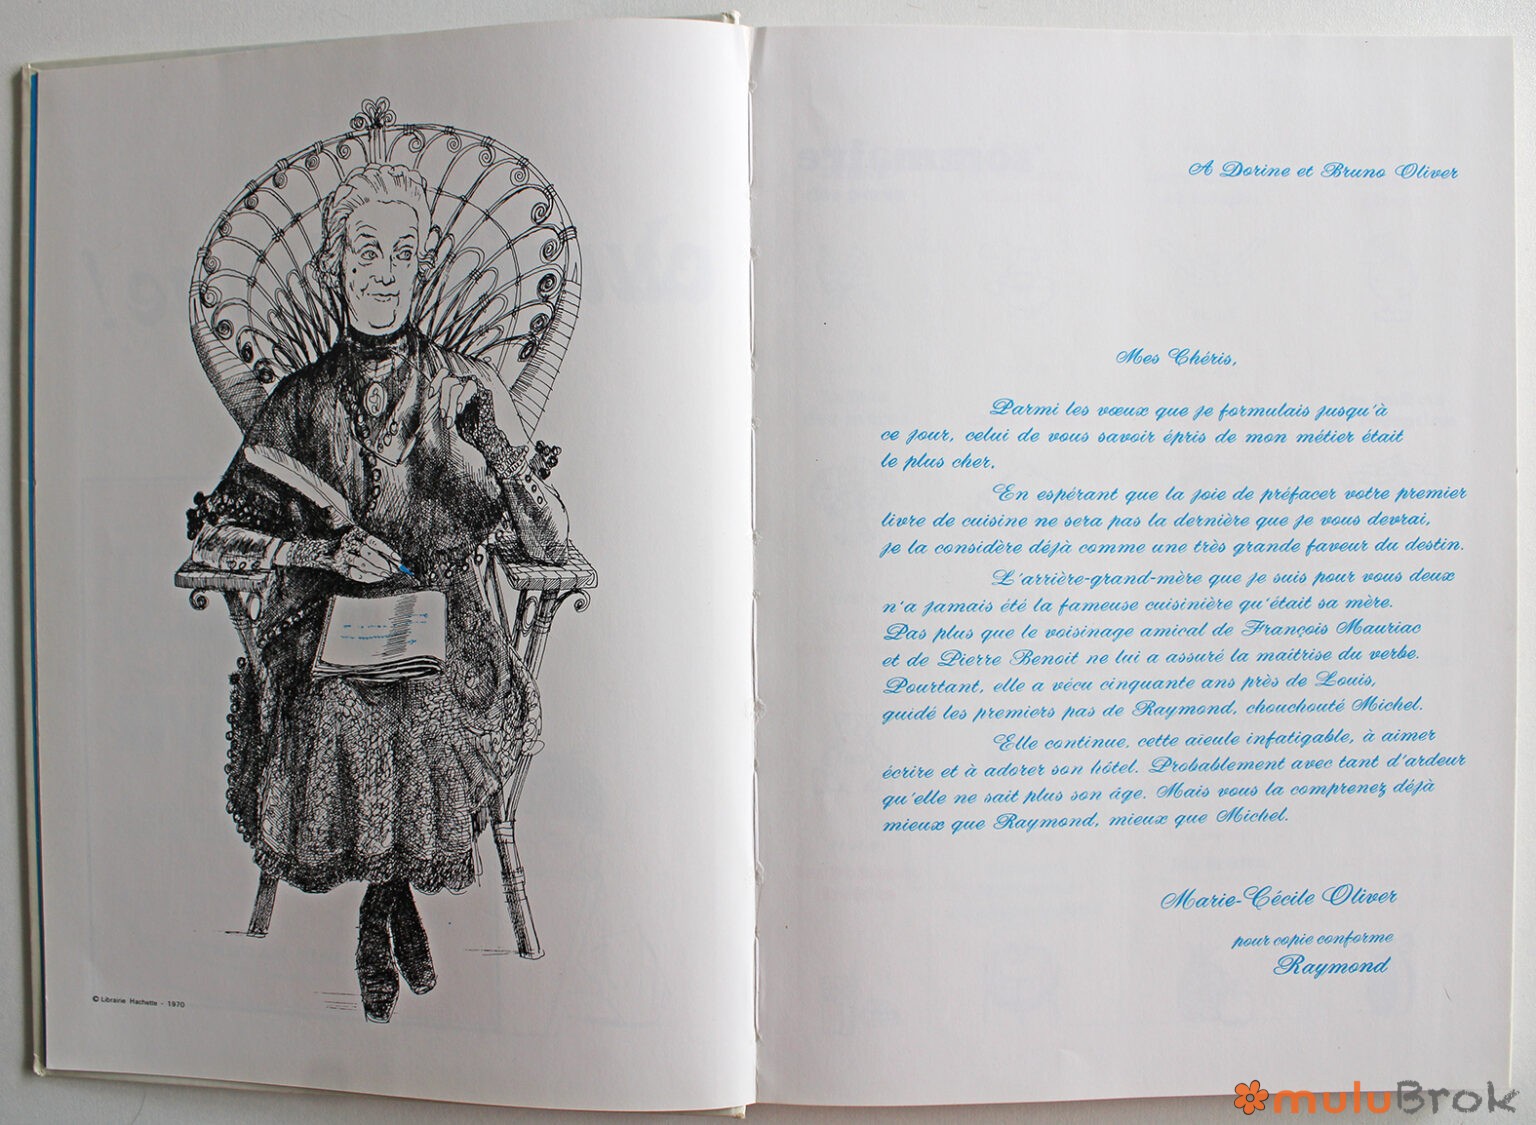 A Dorine et Bruno Oliver
Mes Chéris,
Parmi les vœux que je formulais jusqu'à
ce jour, celui de vous savoir épris de mon métier était
le plus cher.
En espérant que la joie de préfacer votre premier
livre de cuisine ne sera pas la dernière que je vous devrai,
je la considère déjà comme une très grande faveur du destin.
L'arrière-grand-mère que je suis pour vous deux
n'a jamais été la fameuse cuisinière qu'était sa mère.
Pas plus que le voisinage amical de François Mauriac
et de Pierre Benoit ne lui a assuré la maîtrise du verbe.
Pourtant, elle a vécu cinquante ans près de Louis,
guidé les premiers pas de Raymond, chouchouté Michel.
Elle continue, cette aïeule infatigable, à aimer
écrire et à adorer son hôtel. Probablement avec tant d'ardeur
qu'elle ne sait plus son âge. Mais vous la comprenez déjà
mieux que Raymond, mieux que Michel.
Marie-Cécile Oliver
pour copie conforme
Raymond
© Librairie Hachette - 1970
muluBrok